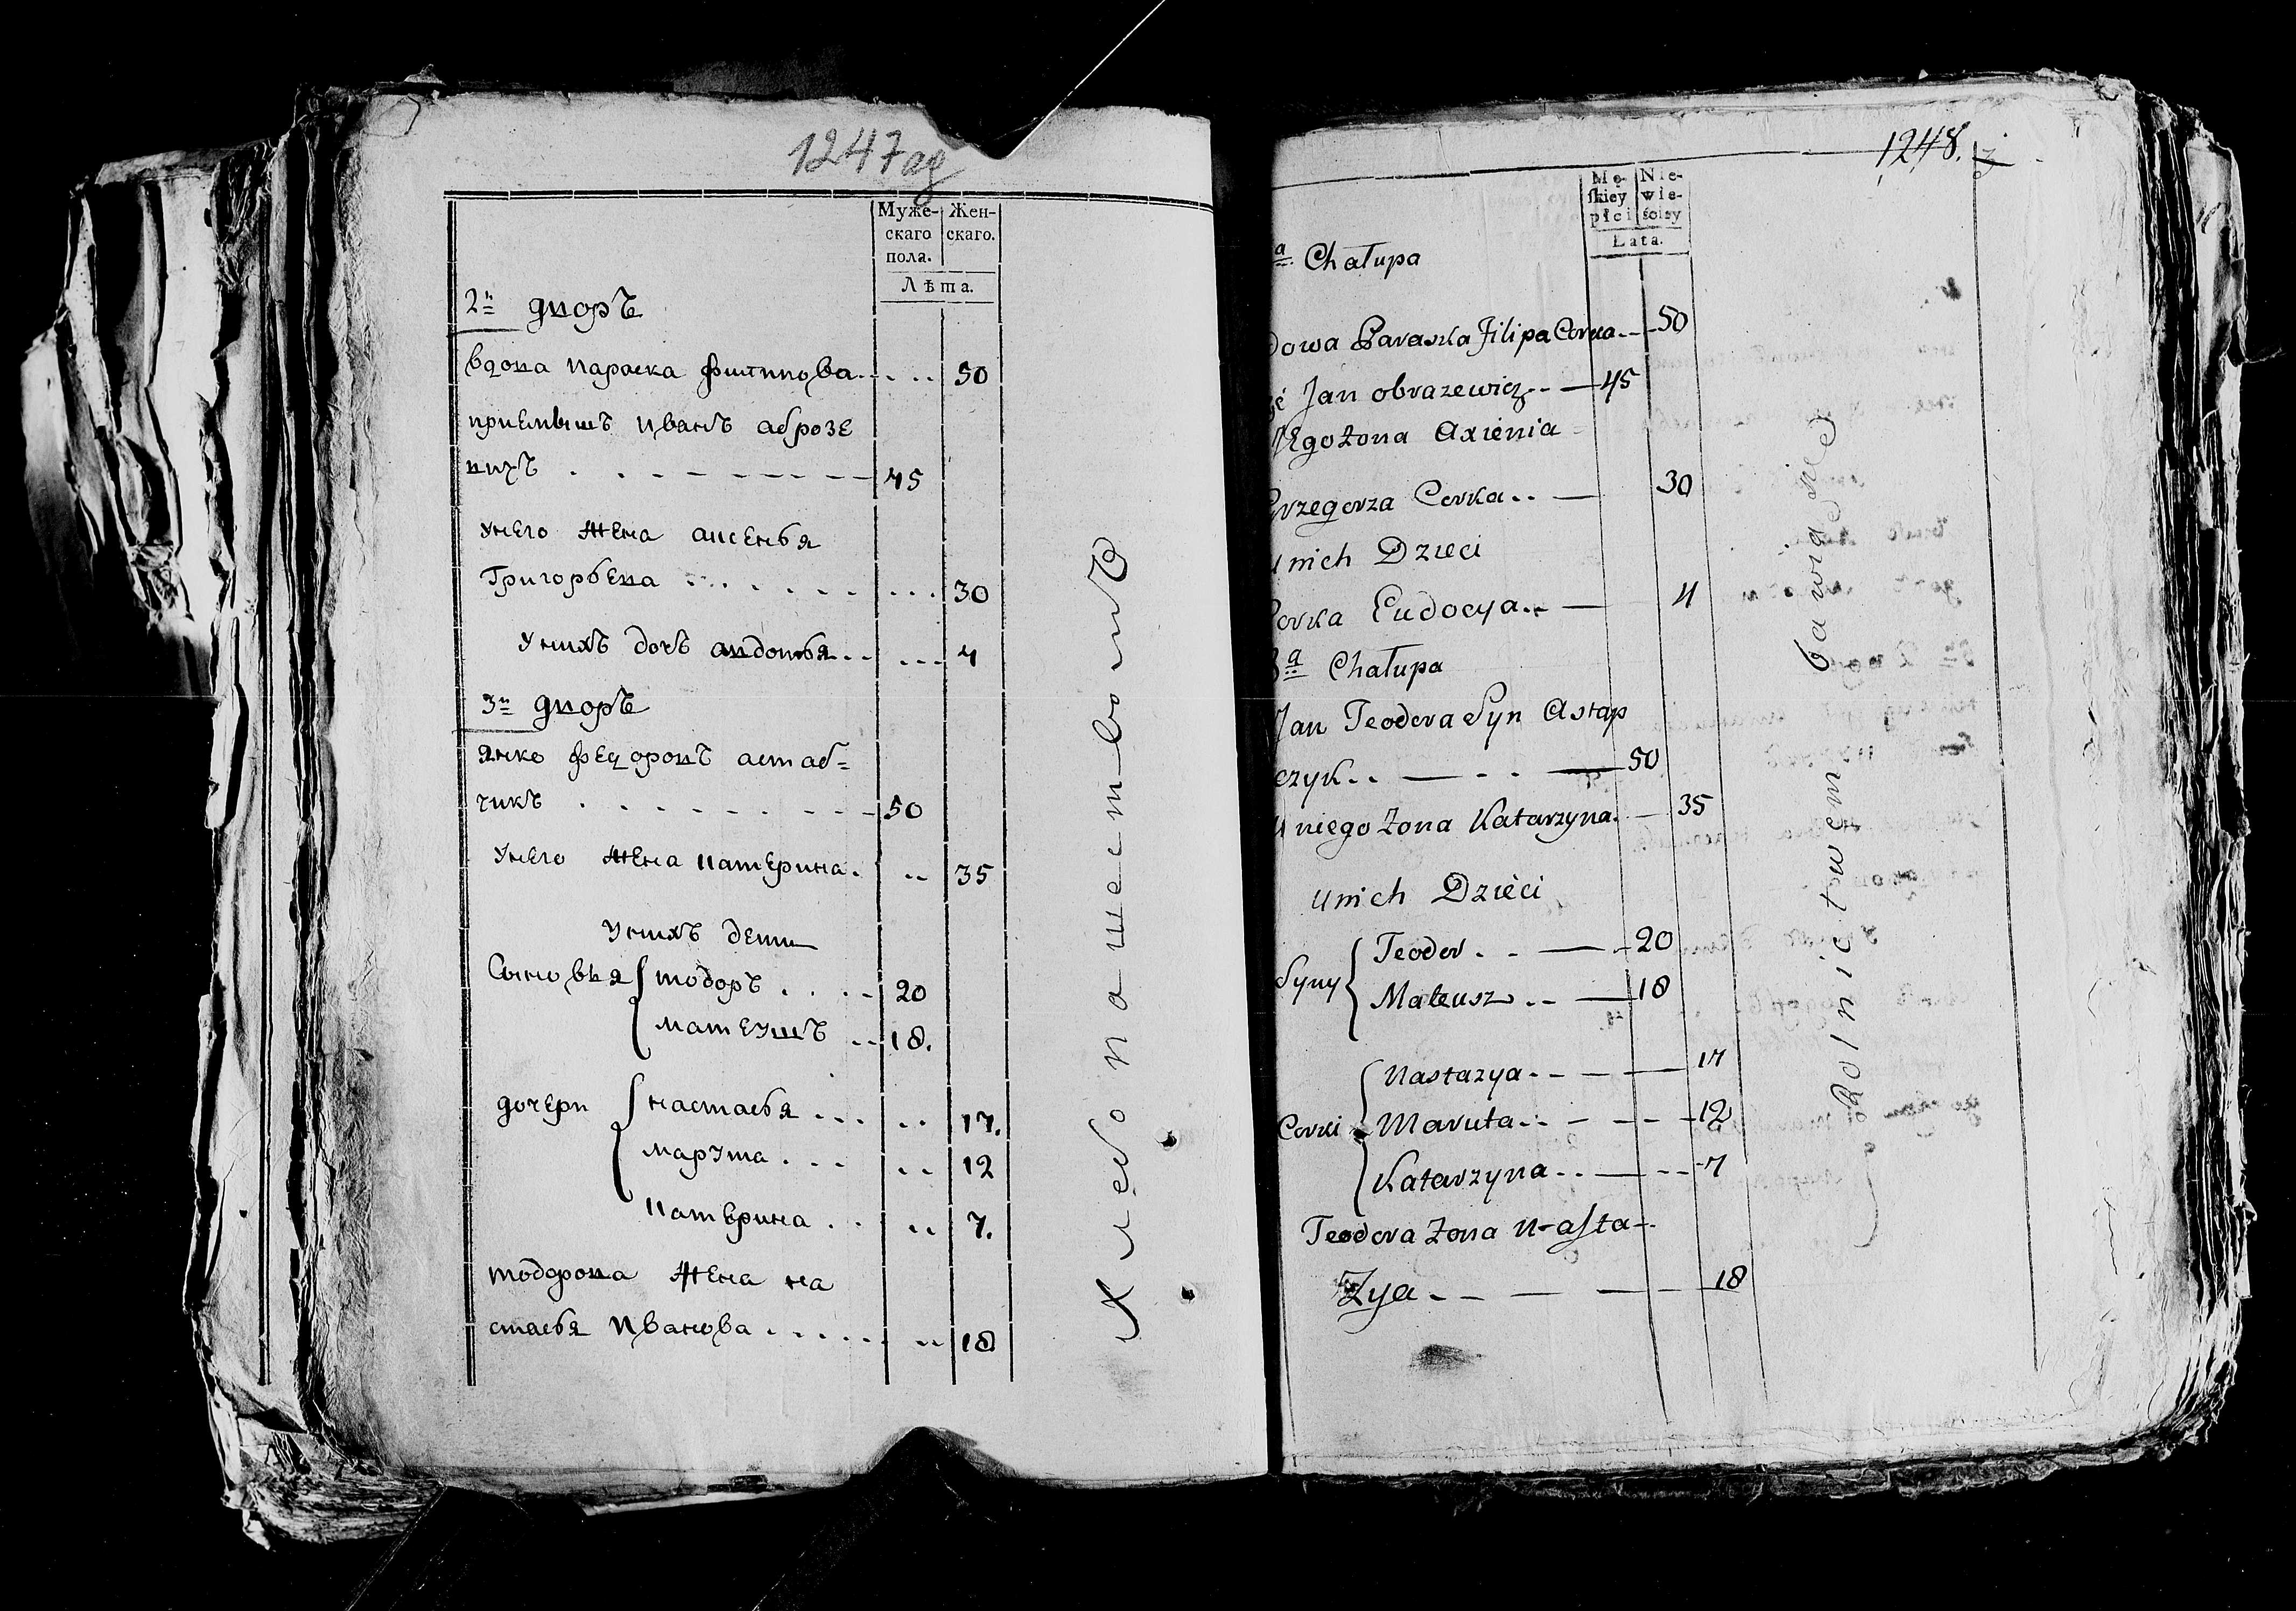 1247
Муже-
скаго
пола.
Жен-
скаго.
Лѣта.
2й дворъ
вдова параска филипова 50
приемышъ иванъ аброзе
вихъ 45
унего жена аксенья
Григорьева 30
унихъ дочь авдотья 4
3й дворъ
янко федоровъ астаб=
чикъ 50
унего жена катерина 35
унихъ дети
Сыновья тодоръ 20
матеушъ 18.
дочери настасья 17.
марута 12
катерина 7.
тодорова жена на
стасья иванова 18
Хлебопашествомъ
1248.
Mę-
skiey
płci
Nie-
wie-
sciey
Lata.
a Chałupa
dowa Paraska Filipa Corka 50
Jan obrazewicz 45
Jego żona Axienia
Grzegorza Corka 30
unich Dzieci
Corka Eudocya 4
3a Chałupa
Jan Teodora Syn Astap
czyk 50
U niego żona Katarzyna 35
unich Dzieci
Syny Teodor 20
Mateusz 18
Corki Nastazya 17
Maruta 12
Katarzyna 7
Teodora żona Nasta-
Zya 18
Rolnictwem bawią się